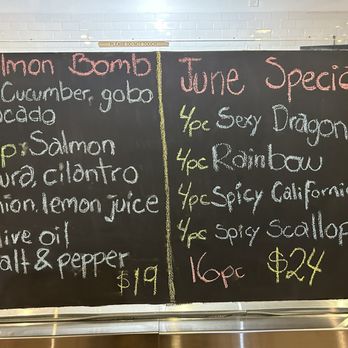 PLEASE DO NOT TOUCH
lmon Bomb
Cucumber, gobo
ocado
p: Salmon
ura, cilantro
nion, lemon juice
live oil
alt & pepper
$19
June Specia
4pc Sexy Dragon
4pc Rainbow
4pc Spicy California
4pc Spicy Scallop
16pc $24